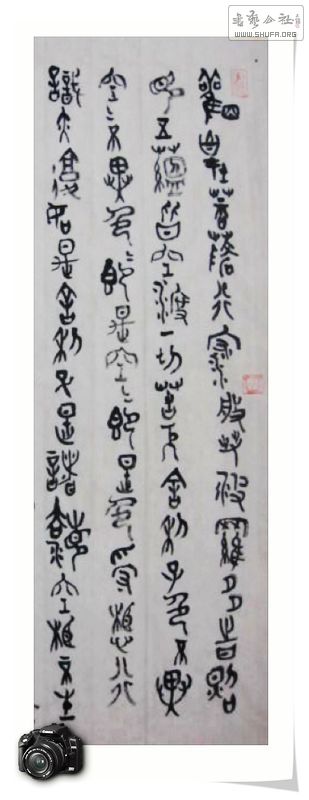 書藝公社
WWW.SHUFA.ORG
觀自在菩薩行深般若波羅多時照
見五蘊皆空渡一切苦厄舍利子色不異
空〻不異色〻即是空〻即是色受想行
識亦復如是舍利子是諸法空相不生